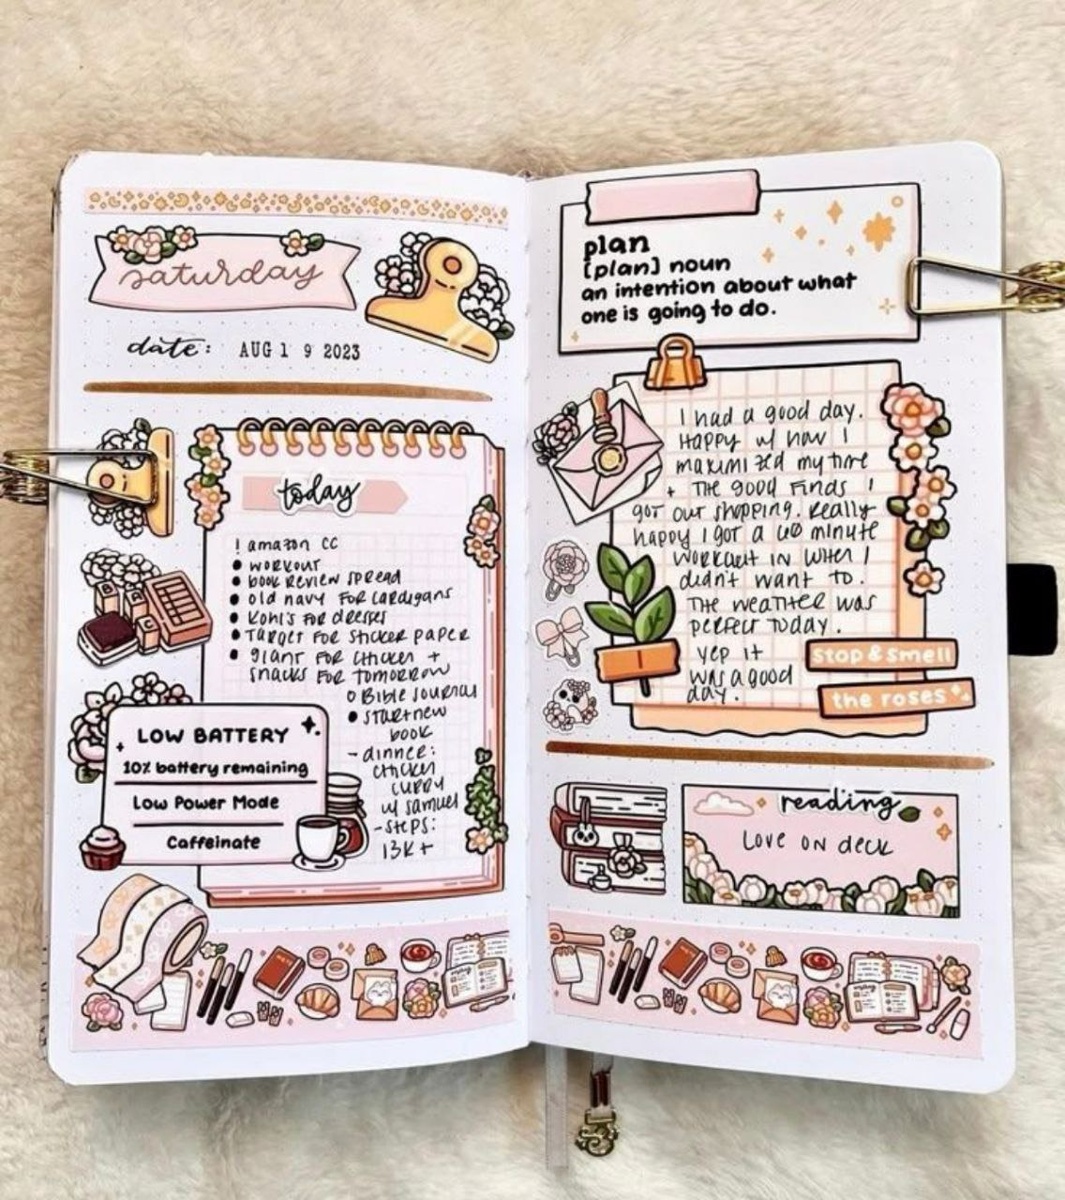 saturday
date: AUG 1 9 2023
today
! amazon CC
• workout
• book review spread
• old navy for cardigans
• Kohl's for dresses
• Target for sticker paper
• giant for chicken +
snacks for tomorrow
o Bible journal
• start new
book
- dinner:
chicken
curry
w/ samuel
- steps:
13K+
LOW BATTERY
10% battery remaining
Low Power Mode
Caffeinate
plan
[plan] noun
an intention about what
one is going to do.
I had a good day.
Happy w/ how I
maximized my time
+ the good finds I
got out shopping. Really
happy I got a 60 minute
workout in when I
didn't want to.
The weather was
perfect today.
Yep it
was a good
day.
stop & smell
the roses
reading
Love on deck